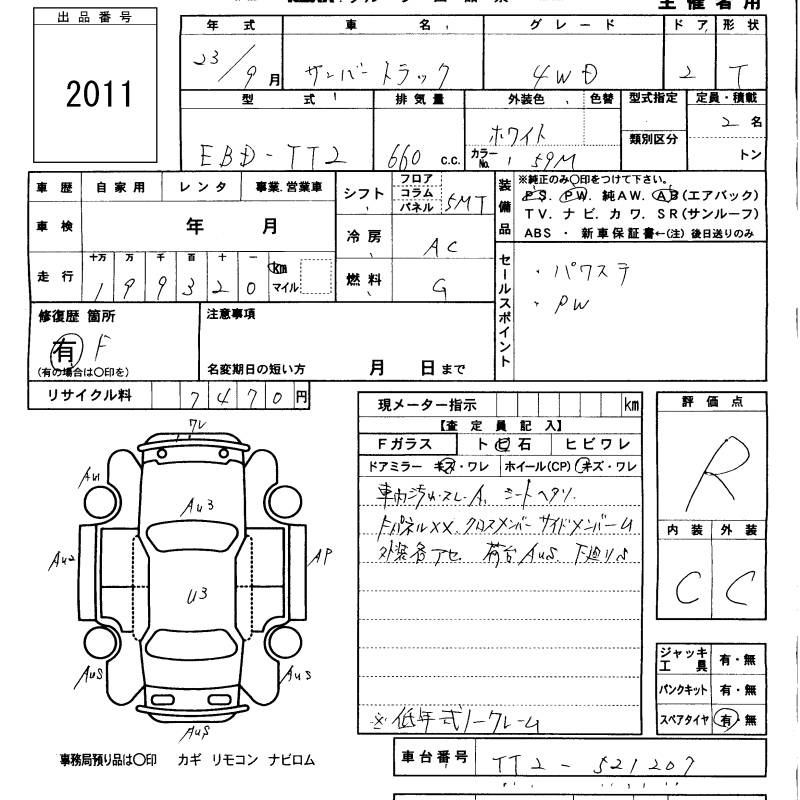 出品番号
2011
主催者用
年式 車名 グレード ドア 形状
23/9月 サンバートラック 4WD 2 T
型式 排気量 外装色 色替 型式指定 定員・積載
EBD-TT2 660 c.c. ホワイト カラーNo. 59M 類別区分 2名 トン
車歴 自家用 レンタ 事業.営業車
車検 年 月
走行 十万 万 千 百 十 一 km マイル
1 9 9 3 2 0
シフト フロア コラム パネル 5MT
冷房 AC
燃料 G
装備品
※純正のみ○印をつけて下さい。
PS. PW. 純AW. AB(エアバック)
TV. ナビ. カワ. SR(サンルーフ)
ABS ・ 新車保証書←(注) 後日送りのみ
セールスポイント
・パワステ
・PW
修復歴 箇所
有 F
(有の場合は○印を)
注意事項
名変期日の短い方 月 日まで
リサイクル料 7470円
現メーター指示 km
【査定員記入】
Fガラス トビ石 ヒビワレ
ドアミラー キズ・ワレ ホイール(CP) キズ・ワレ
車内汚れ・スレ・A. シートヘタリ.
FパネルXX. クロスメンバー サイドメンバーU
外装各アセ. 荷台AuS. 下廻りS
※低年式ノークレーム
評価点
R
内装 外装
C C
ジャッキ工具 有・無
パンクキット 有・無
スペアタイヤ 有・無
ワレ
Au1
Au3
Au2
AP
U3
AuS
Au3
AuS
事務局預り品は○印 カギ リモコン ナビロム
車台番号 TT2-521207